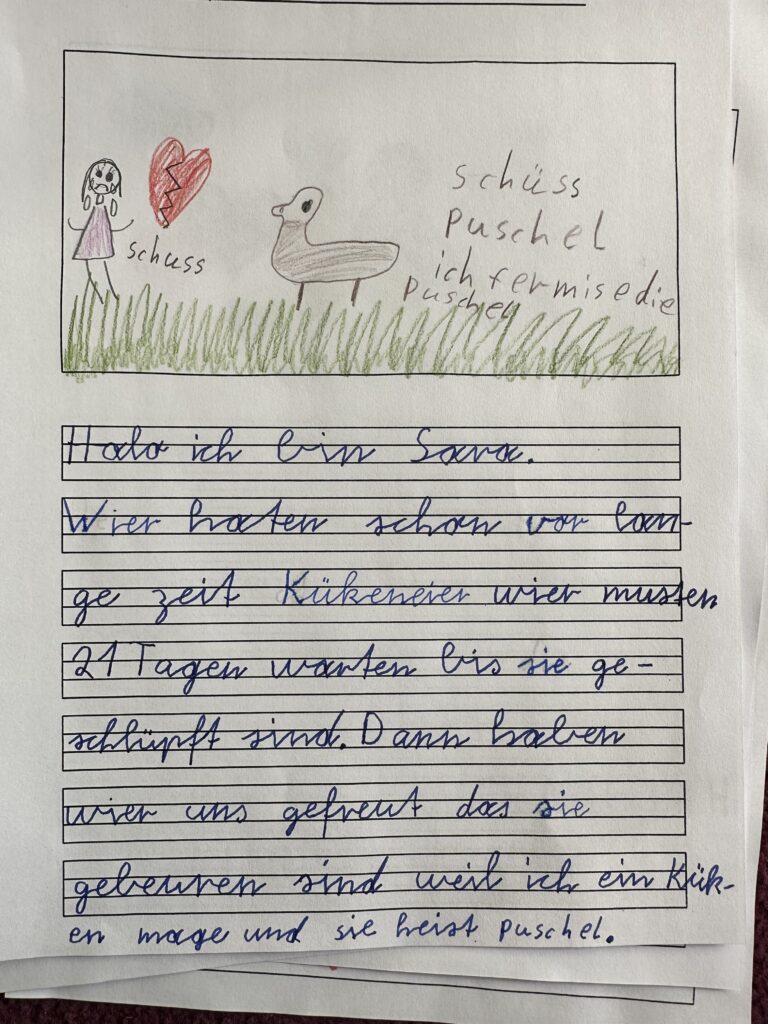 schuss
schüss
puschel
ich fermise die
puschel
Halo ich bin Sara.
Wier haten schon vor lan-
ge zeit Kükeneier wier musten
21 Tagen warten bis sie ge-
schlüpft sind. Dann haben
wier uns gefreut das sie
gebeuren sind weil ich ein Kük-
en mage und sie heist puschel.